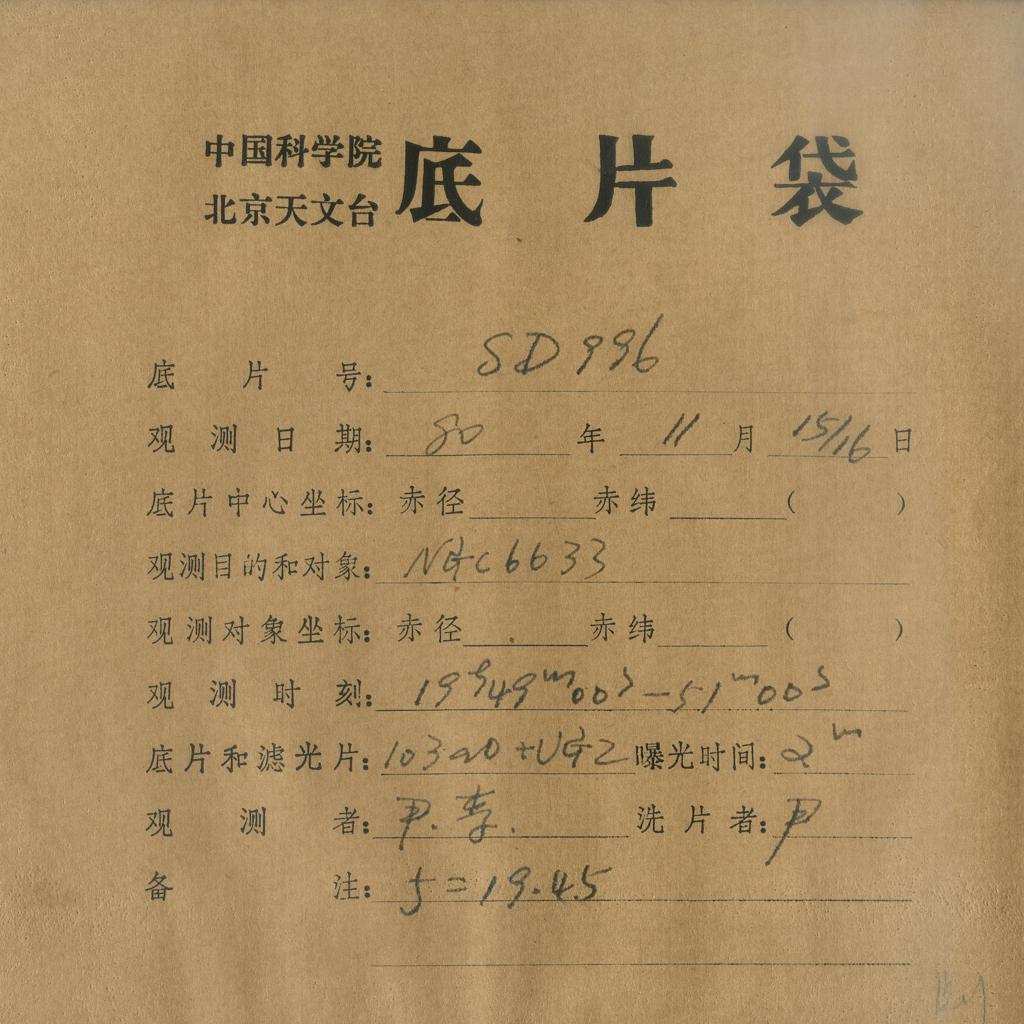 中国科学院
北京天文台 底片袋
底片号: SD996
观测日期: 80 年 11 月 15/16 日
底片中心坐标: 赤径 赤纬 ( )
观测目的和对象: NGC6633
观测对象坐标: 赤径 赤纬 ( )
观测时刻: 19h49m00s-51m00s
底片和滤光片: 103aO+UG2 曝光时间: 2m
观测者: 尹.李. 洗片者: 尹
备注: 5=19.45